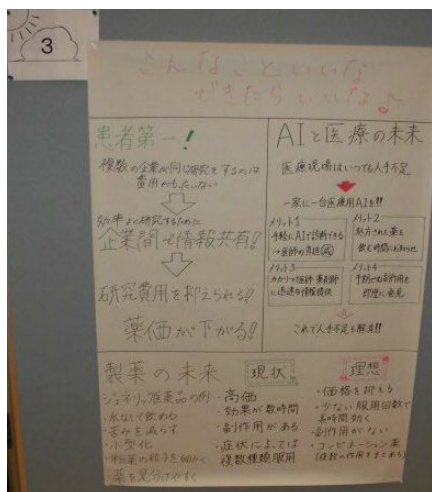 3
こんなこといいな
できたらいいな♪
患者第一!
複数の企業が同じ研究をするのは
費用がもったいない
効率よく研究するために
企業間で情報共有!
研究費用を抑えられる!
薬価が下がる!
AIと医療の未来
医療現場はいつでも人手不足
一家に一台医療用AIを!!
メリット1
手軽にAIで診断できる
→医師の負担減
メリット2
処方された薬を
飲む時間にお知らせ
メリット3
かかりつけ医師・薬剤師
に迅速な情報提供
メリット4
予期せぬ副作用を
即座に発見
これで人手不足も解消!!
製薬の未来
ジェネリック医薬品の例
・水なしで飲める
・苦みを減らす
・小型化
・粉薬の粒子を細かく
・薬を見分けやすく
現状
・高価
・効果が数時間
・副作用がある
・症状によっては
複数種類服用
理想
・価格を抑える
・少ない服用回数で
長時間効く
・副作用がない
・コンビネーション薬
(複数の作用をまとめる)